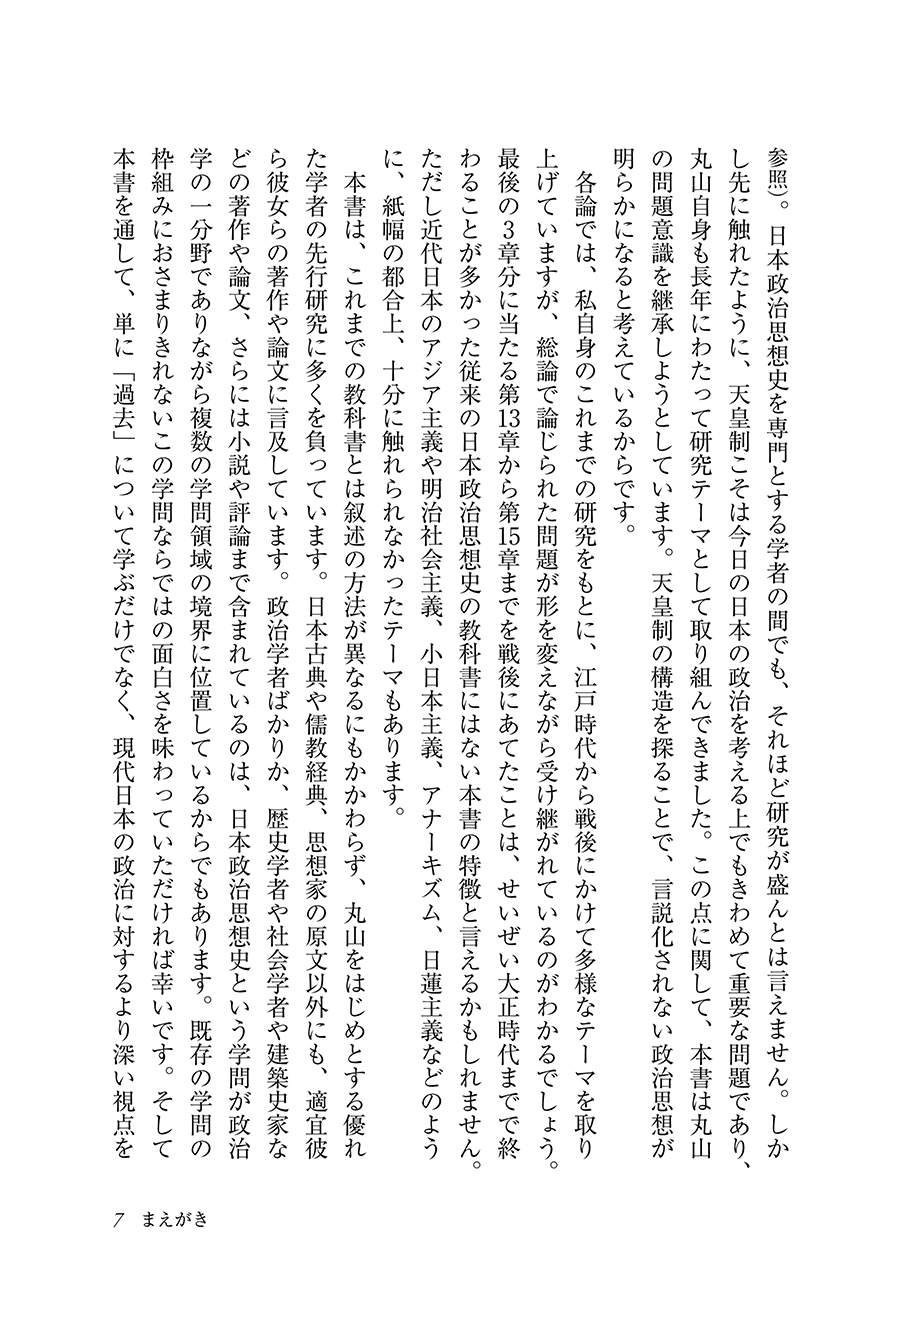 参照）。日本政治思想史を専門とする学者の間でも、それほど研究が盛んとは言えません。しか
し先に触れたように、天皇制こそは今日の日本の政治を考える上でもきわめて重要な問題であり、
丸山自身も長年にわたって研究テーマとして取り組んできました。この点に関して、本書は丸山
の問題意識を継承しようとしています。天皇制の構造を探ることで、言説化されない政治思想が
明らかになると考えているからです。
　各論では、私自身のこれまでの研究をもとに、江戸時代から戦後にかけて多様なテーマを取り
上げていますが、総論で論じられた問題が形を変えながら受け継がれているのがわかるでしょう。
最後の3章分に当たる第13章から第15章までを戦後にあてたことは、せいぜい大正時代までで終
わることが多かった従来の日本政治思想史の教科書にはない本書の特徴と言えるかもしれません。
ただし近代日本のアジア主義や明治社会主義、小日本主義、アナーキズム、日蓮主義などのよう
に、紙幅の都合上、十分に触れられなかったテーマもあります。
　本書は、これまでの教科書とは叙述の方法が異なるにもかかわらず、丸山をはじめとする優れ
た学者の先行研究に多くを負っています。日本古典や儒教経典、思想家の原文以外にも、適宜彼
ら彼女らの著作や論文に言及しています。政治学者ばかりか、歴史学者や社会学者や建築史家な
どの著作や論文、さらには小説や評論まで含まれているのは、日本政治思想史という学問が政治
学の一分野でありながら複数の学問領域の境界に位置しているからでもあります。既存の学問の
枠組みにおさまりきれないこの学問ならではの面白さを味わっていただければ幸いです。そして
本書を通して、単に「過去」について学ぶだけでなく、現代日本の政治に対するより深い視点を
7　まえがき